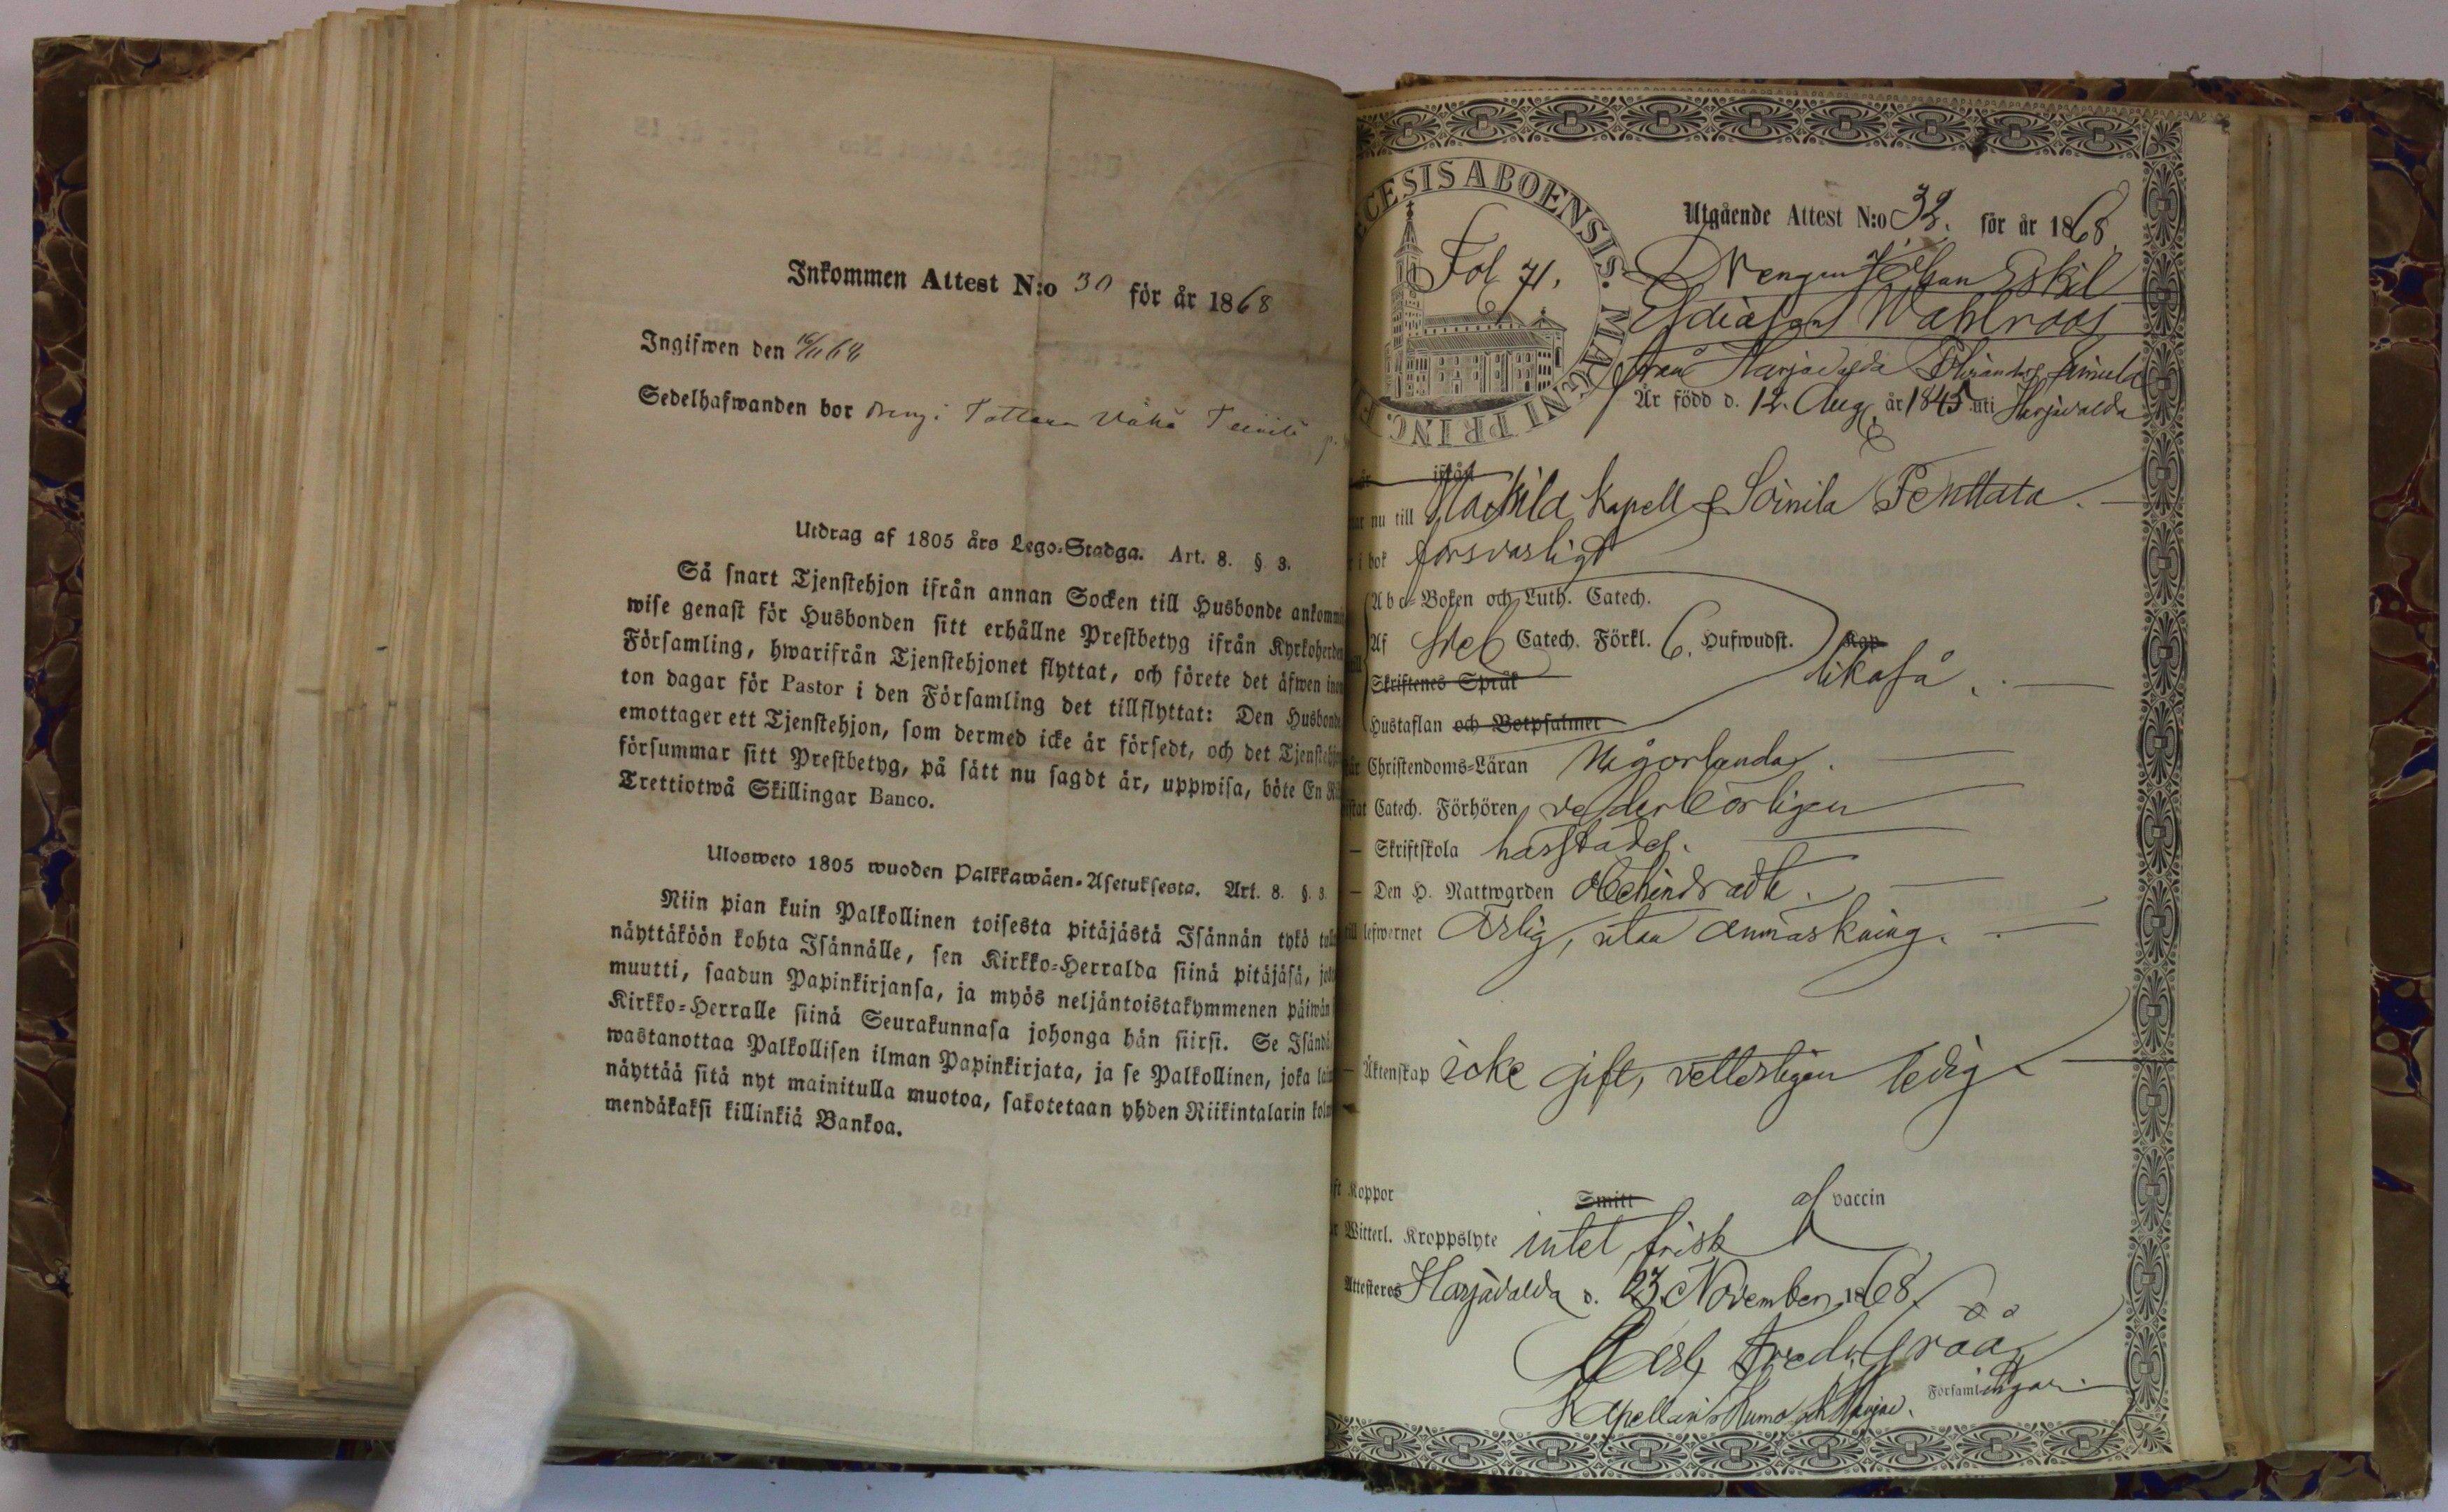 Inkommen Attest N:o 30 för år 1868
Ingifwen den
Sedelhafwanden bor dreng i Tattara Vähä
Utdrag af 1805 års Lego-Stadga. Art. 8. § 3.
Så snart Tjenstehjon ifrån annan Socken till Husbonde ankomm
wise genast för Husbonden sitt erhållne Prestbetyg ifrån Kyrkoherden
Församling, hwarifrån Tjenstehjonet flyttat, och förete det äfwen inen
ton dagar för Pastor i den Församling det tillflyttat: Den Husbonde
emottager ett Tjenstehjon, som dermed icke är försedt, och det Tjenstehjon
försummar sitt Prestbetyg, på sätt nu sagdt är, uppwisa, böte En Ri
Trettiotwå Skillingar Banco.
Ulosweto 1805 wuoden Palkkawäen-Asetuksesta. Art. 8. §. 3.
Niin pian kuin Palkollinen toisesta pitäjästä Isännän tykö tulle
näyttäköön kohta Isännälle, sen Kirkko-Herralda siinä pitäjäsä, jost
muutti, saadun Papinkirjansa, ja myös neljäntoistakymmenen päiwän
Kirkko-Herralle siinä Seurakunnasa johonga hän siirsi. Se Isändä
wastanottaa Palkollisen ilman Papinkirjata, ja se Palkollinen, joka lai
näyttää sitä nyt mainitulla muotoa, sakotetaan yhden Riikintalarin kolm
mendäkaksi killinkiä Bankoa.
CESIS ABOENSIS. MAGNI PRINC. F
Fol 71.
Utgående Attest N:o 32. för år 1868.
Drengen Johan Eskil
Esaiasson Wahlroos
från Harjavalda
Är född d. 12. Aug. år 1845 uti Harjavalda
ifrån
ar nu till Kapell Soinila Penttala.
r i bok försvarligt
Abc-Boken och Luth. Catech.
Af Catech. Förkl. 6. Hufwudst. Kap
Skriftenes Språk likaså.
Hustaflan och Botpsalmer
är Christendoms-Läran någorlunda.
istat Catech. Förhören vederbörligen
— Skriftskola
— Den H. Nattwarden obehindradt.
till lefwernet Ärlig, utan anmärkning.
— Äktenskap icke gift, vetterligen ledig
ft Koppor Smitt af vaccin
r Witterl. Kroppslyte intet, frisk
Attesteras Harjavalda d. 23. November 1868.
Carl Fredr. Grää
Kapellan i Kumo och Harjav. Församlingar.